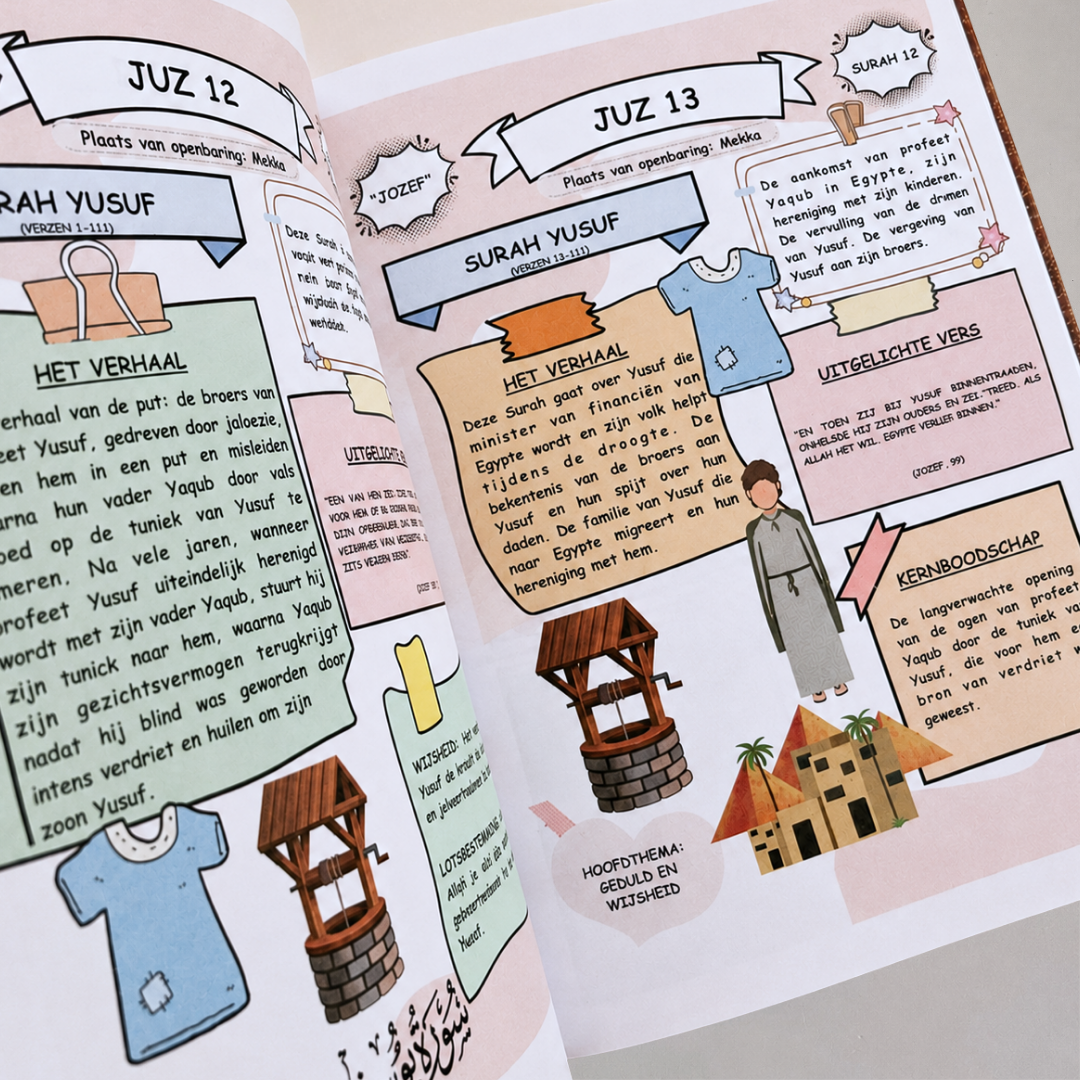 JUZ 12
Plaats van openbaring: Mekka
RAH YUSUF
(VERZEN 1-111)
Deze Surah
HET VERHAAL
erhaal van de put: de broers van
eet Yusuf, gedreven door jaloezie,
en hem in een put en misleiden
arna hun vader Yaqub door vals
oed op de tuniek van Yusuf te
meren. Na vele jaren, wanneer
profeet Yusuf uiteindelijk herenigd
wordt met zijn vader Yaqub, stuurt hij
zijn tunick naar hem, waarna Yaqub
zijn gezichtsvermogen terugkrijgt
nadat hij blind was geworden door
intens verdriet en huilen om zijn
zoon Yusuf.
"EEN VAN HEN
VOOR HEM OF
WIJSHEID: Het
Yusuf de
LOTSBESTEMMING
Allah je
JUZ 13
Plaats van openbaring: Mekka
SURAH 12
"JOZEF"
SURAH YUSUF
(VERZEN 13-111)
De aankomst van profeet
Yaqub in Egypte, zijn
hereniging met zijn kinderen.
De vervulling van de drımen
van Yusuf. De vergeving van
Yusuf aan zijn broers.
HET VERHAAL
Deze Surah gaat over Yusuf die
minister van financiën van
Egypte wordt en zijn volk helpt
tijdens de droogte. De
bekentenis van de broers aan
Yusuf en hun spijt over hun
daden. De familie van Yusuf die
naar Egypte migreert en hun
hereniging met hem.
UITGELICHTE VERS
"EN TOEN ZIJ BIJ YUSUF BINNENTRAADEN,
ONHELSDE HIJ ZIJN OUDERS EN ZEI."TREED. ALS
ALLAH HET WIL. EGYPTE VERLIEF BINNEN."
(JOZEF . 99)
KERNBOODSCHAP
De langverwachte opening
van de ogen van profeet
Yaqub door de tuniek va
Yusuf, die voor hem e
bron van verdriet w
geweest.
HOOFDTHEMA:
GEDULD EN
WIJSHEID